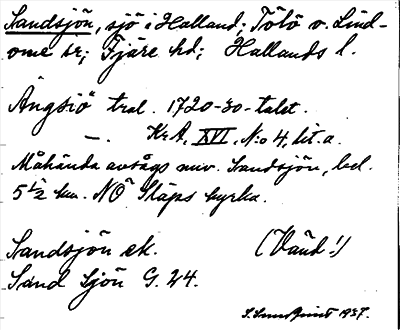 Sandsjön, sjö i Halland; Tölö o. Lind-
ome sr; Fjäre hd; Hallands l.
Ängsiö tral. 1720-30-talet.
—. Kr A, XVI, N:o 4, lit. a.
Måhända avsågs nuv. Sandsjön, bel.
5 1/2 km. NÖ Släps kyrka.
Sandsjön ek. (Vänd!)
Sand Sjön G. 24.
1937.